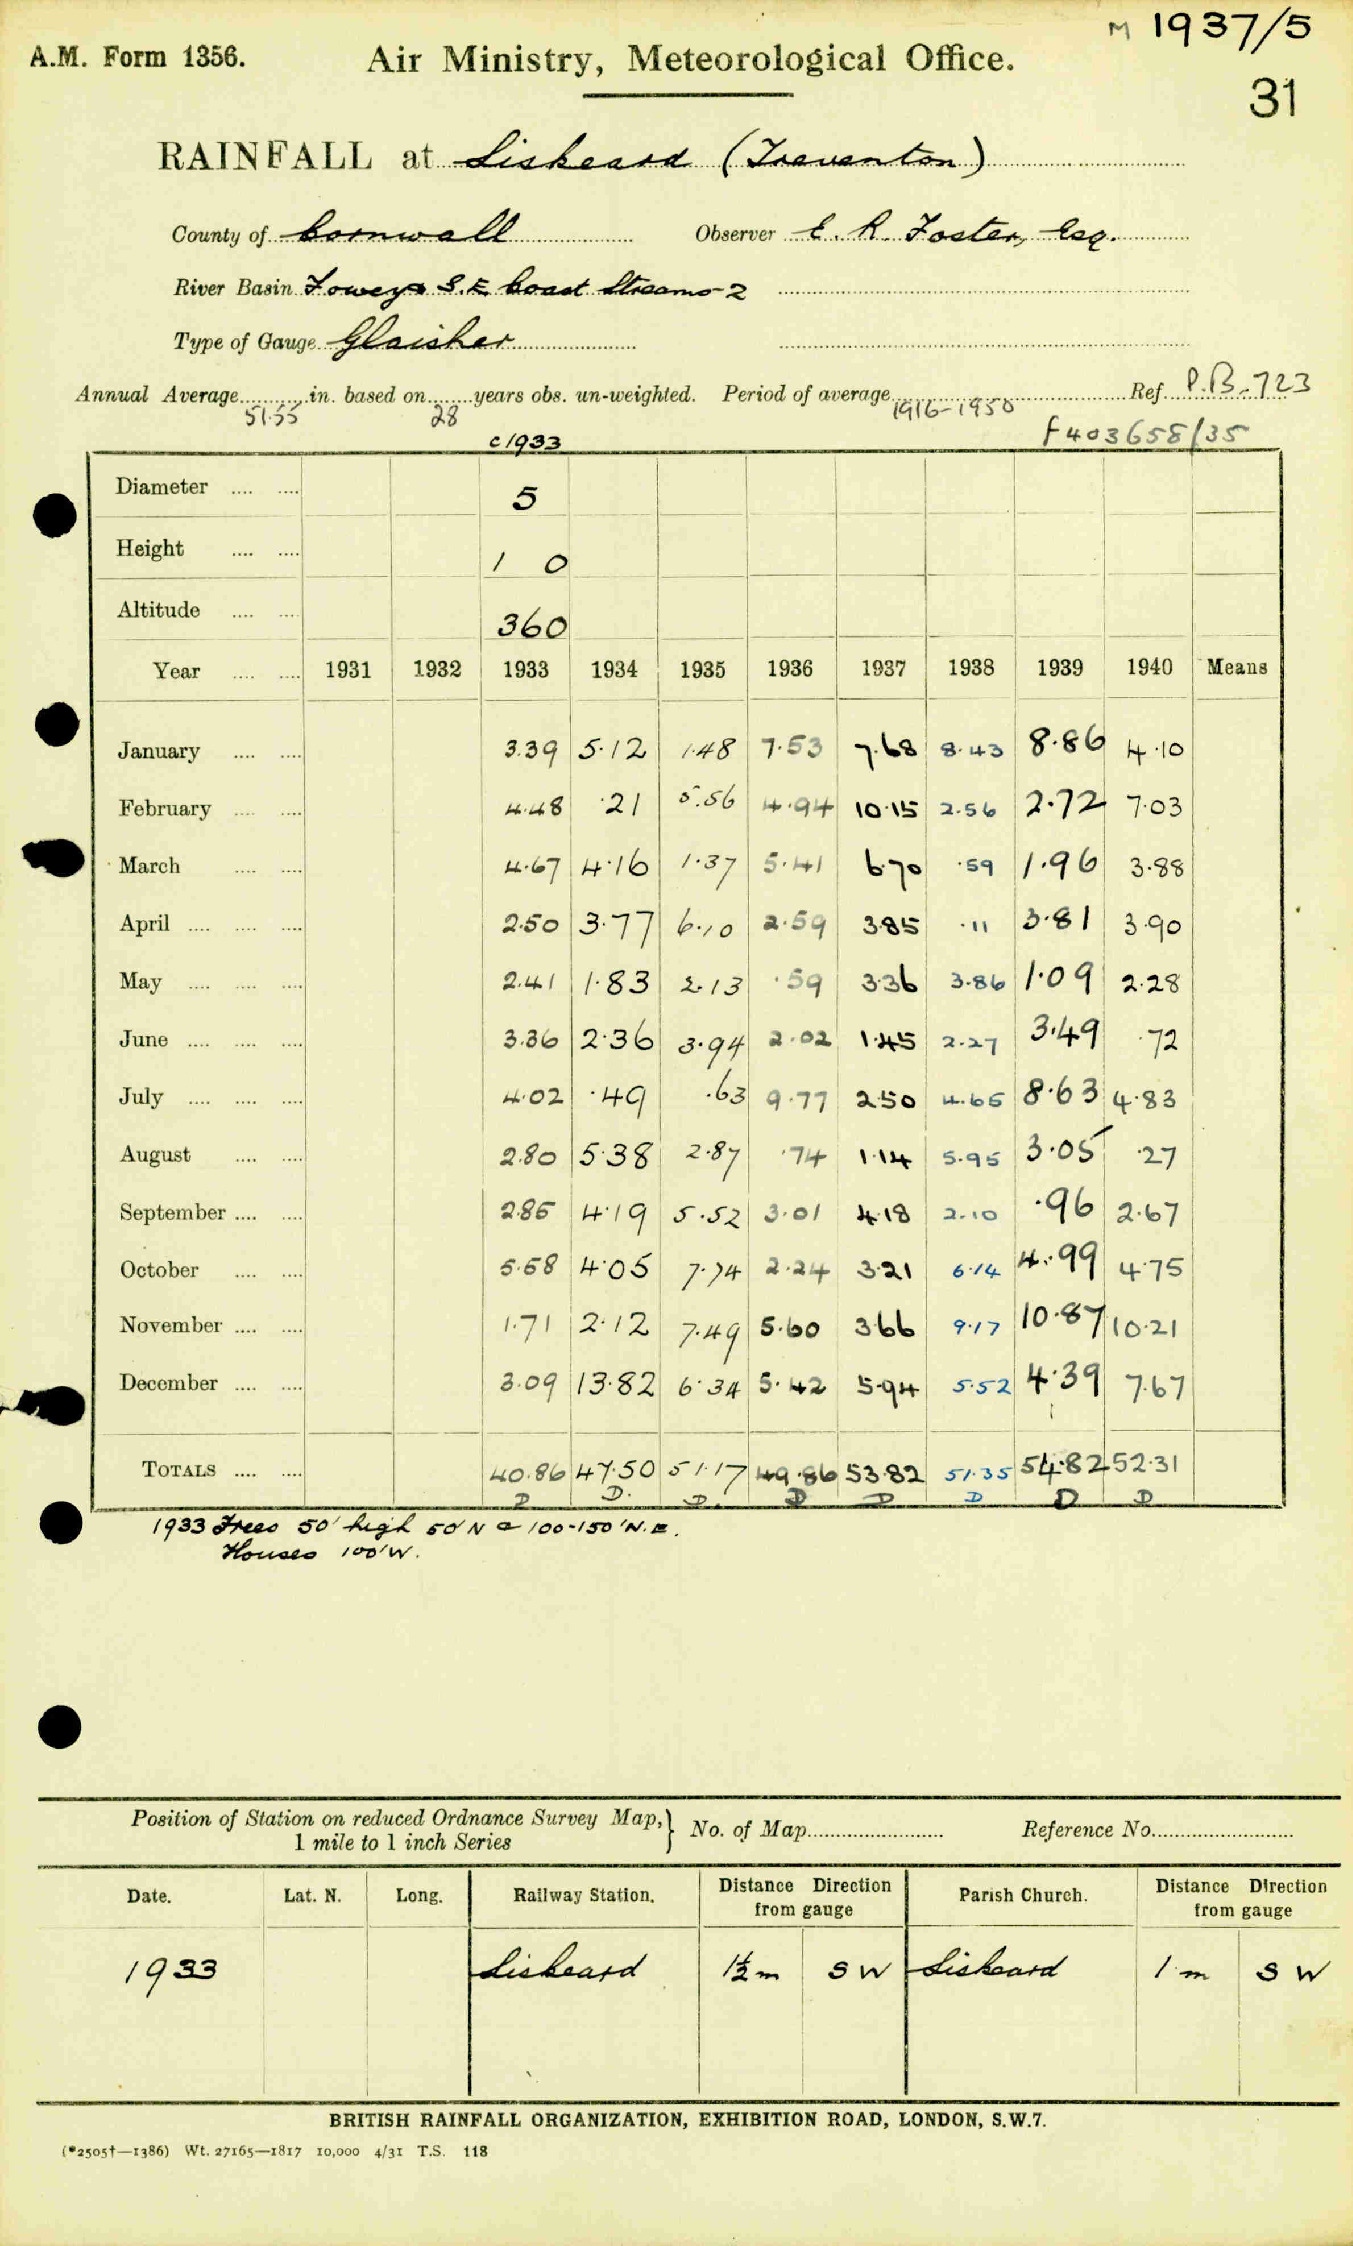 M 1937/5
A.M. Form 1356. Air Ministry, Meteorological Office.
31
RAINFALL at Liskeard (Treventon)
County of Cornwall Observer E. R. Foster, Esq.
River Basin Fowey & S.E Coast Streams-2
Type of Gauge Glaisher
Annual Average 51.55 in. based on 28 years obs. un-weighted. Period of average 1916-1950 Ref. P.B.723
F403658/35
c1933
Diameter .... .... 5
Height .... .... 1 0
Altitude .... .... 360
Year .... .... 1931 1932 1933 1934 1935 1936 1937 1938 1939 1940 Means
January .... .... 3.39 5.12 1.48 7.53 7.68 8.43 8.86 4.10
February .... .... 4.48 .21 5.56 4.94 10.15 2.56 2.72 7.03
March .... .... 4.67 4.16 1.37 5.41 6.70 .59 1.96 3.88
April .... .... .... 2.50 3.77 6.10 2.59 3.85 .11 3.81 3.90
May .... .... .... 2.41 1.83 2.13 .59 3.36 3.86 1.09 2.28
June .... .... .... 3.36 2.36 3.94 2.02 1.45 2.27 3.49 .72
July .... .... .... 4.02 .49 .63 9.77 2.50 4.65 8.63 4.83
August .... .... 2.80 5.38 2.87 .74 1.14 5.95 3.05 .27
September .... .... 2.85 4.19 5.52 3.01 4.18 2.10 .96 2.67
October .... .... 5.58 4.05 7.74 2.24 3.21 6.14 4.99 4.75
November .... .... 1.71 2.12 7.49 5.60 3.66 9.17 10.87 10.21
December .... .... 3.09 13.82 6.34 5.42 5.94 5.52 4.39 7.67
TOTALS .... .... 40.86 47.50 51.17 49.86 53.82 51.35 54.82 52.31
D D. D. D D D D D
1933 Trees 50' high 50'N & 100-150'N.E.
Houses 100'W.
Position of Station on reduced Ordnance Survey Map,} No. of Map Reference No.
1 mile to 1 inch Series
Date. Lat. N. Long. Railway Station. Distance Direction from gauge Parish Church. Distance Direction from gauge
1933 Liskeard 1½ m S W Liskeard 1 m S W
BRITISH RAINFALL ORGANIZATION, EXHIBITION ROAD, LONDON, S.W.7.
(*2505†—1386) Wt. 27165—1817 10,000 4/31 T.S. 118